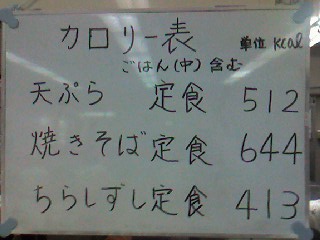 カロリー表 単位 kcal
ごはん(中)含む
天ぷら 定食 512
焼きそば定食 644
ちらしずし定食 413